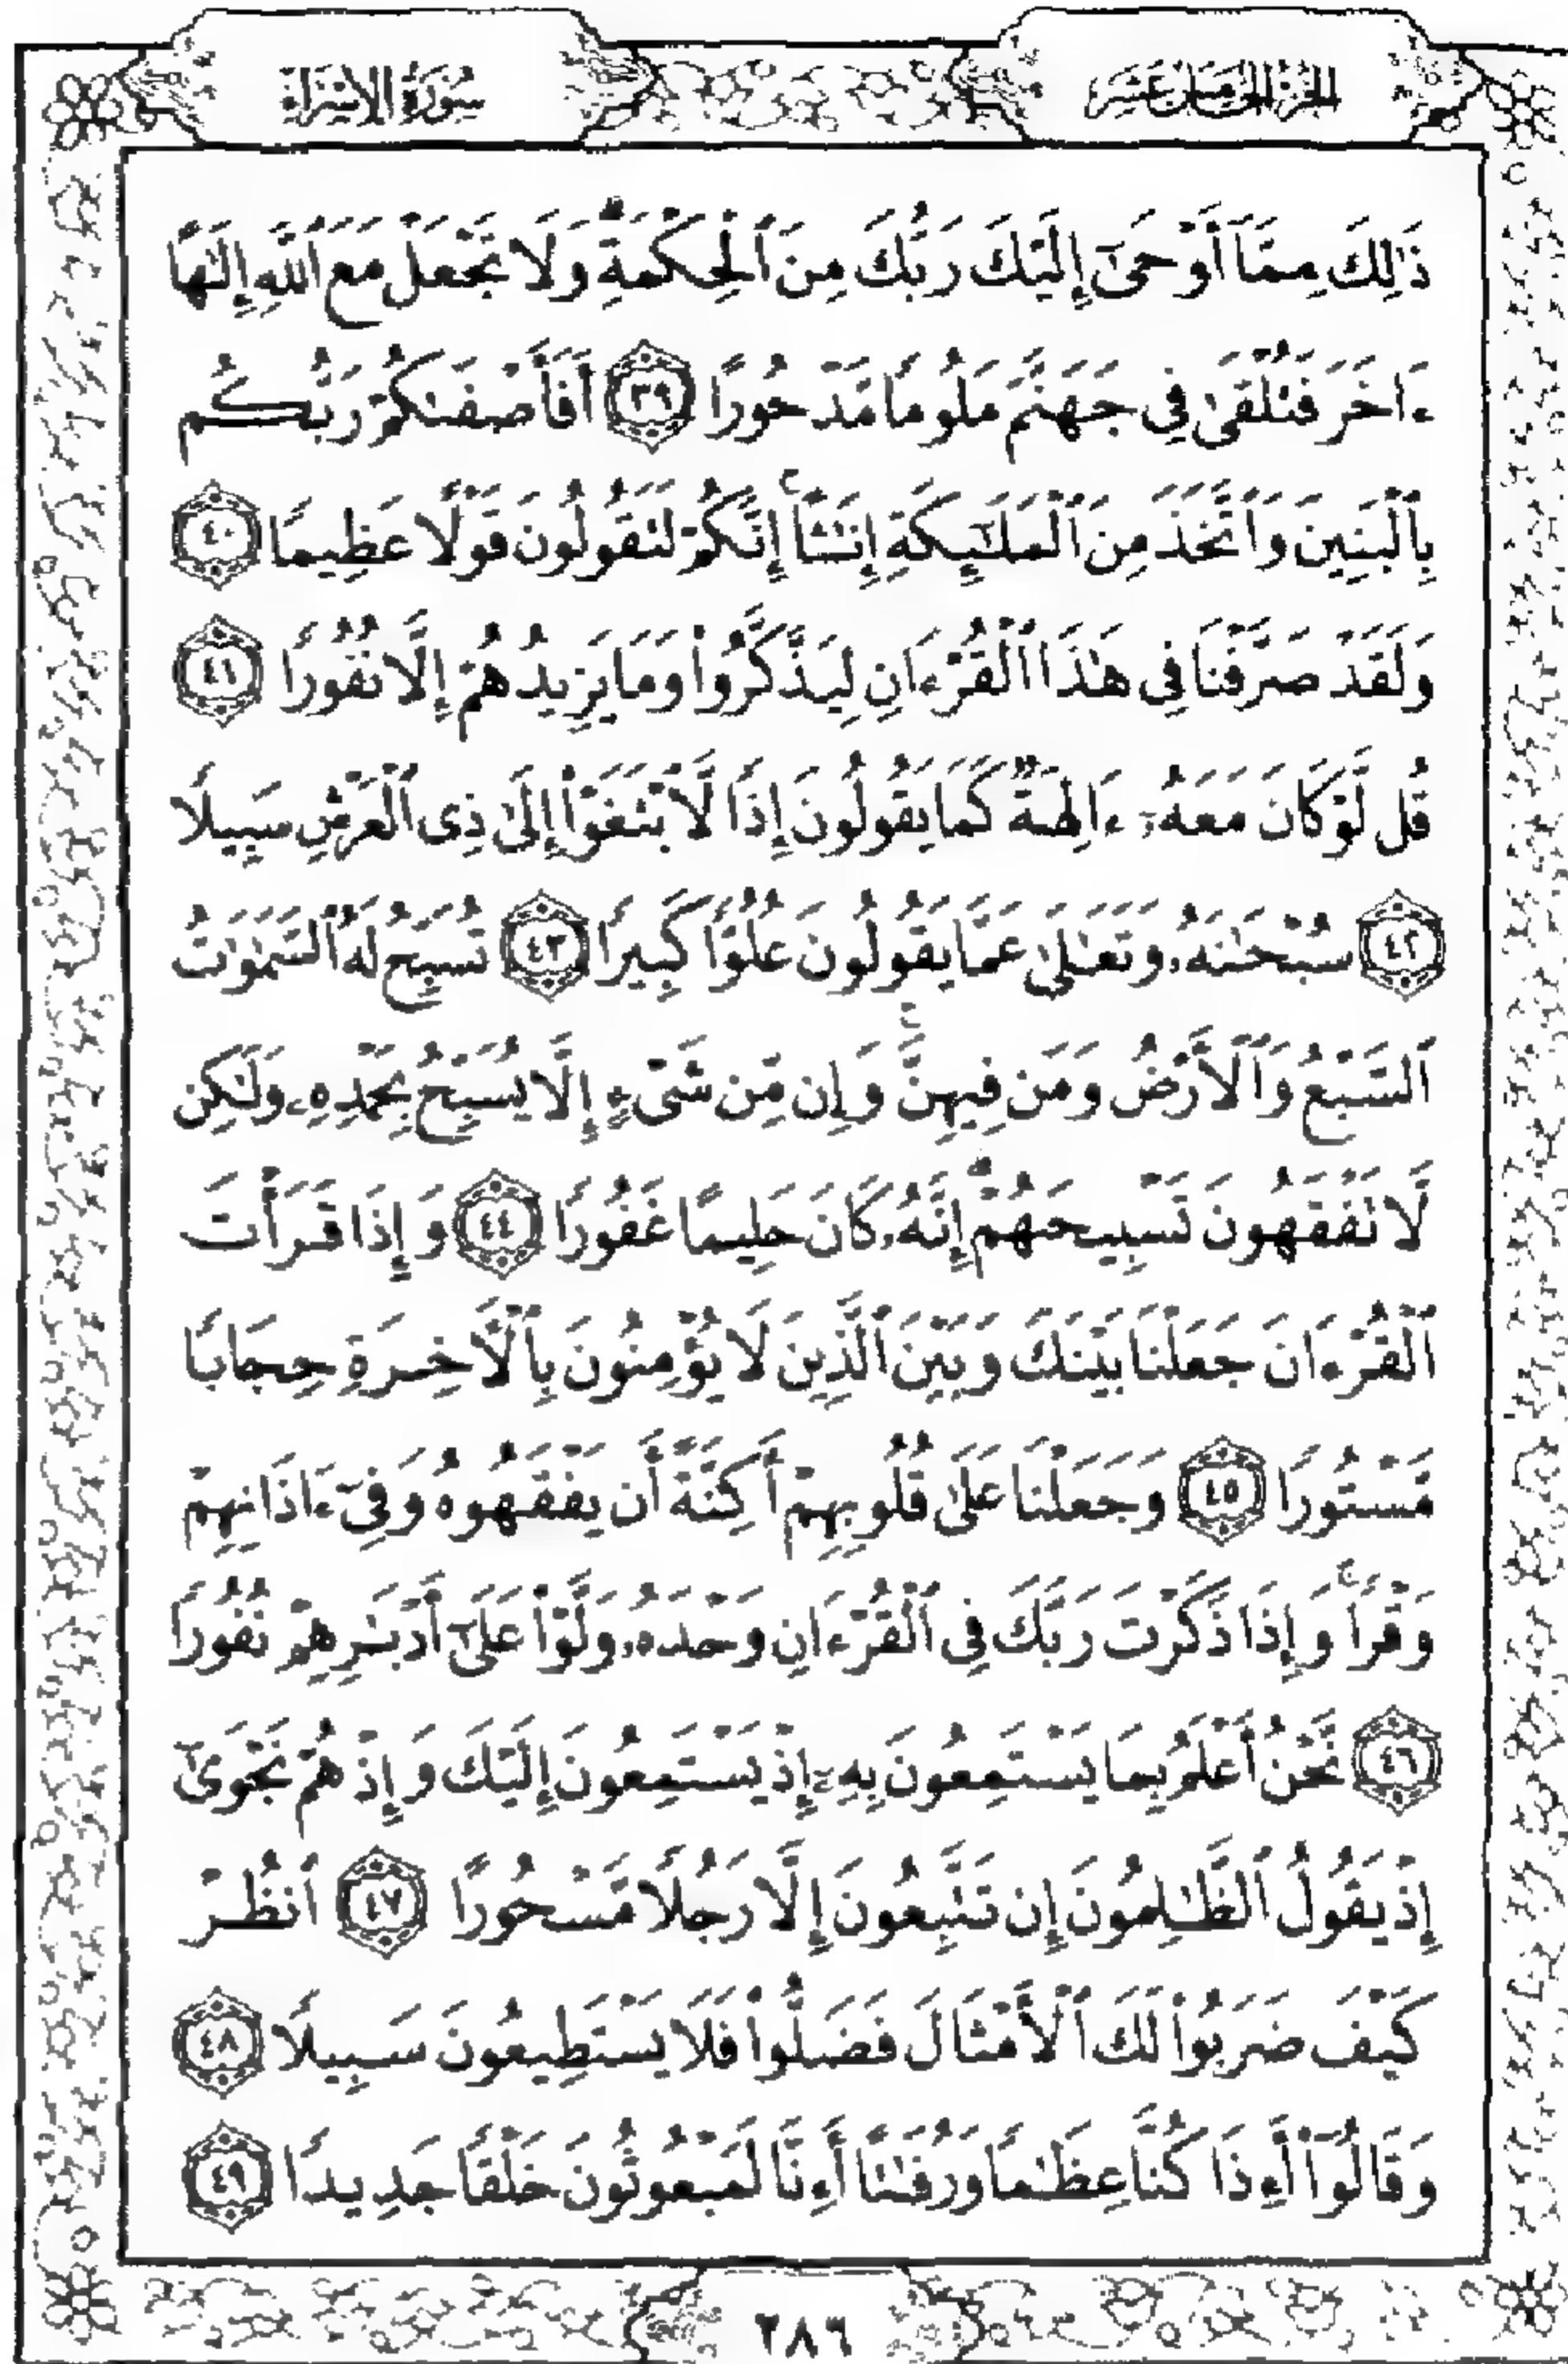 سُورَةُ الإِسْرَاءِ
الجُزْءُ الخَامِسَ عَشَرَ
ذَٰلِكَ مِمَّآ أَوْحَىٰٓ إِلَيْكَ رَبُّكَ مِنَ ٱلْحِكْمَةِۗ وَلَا تَجْعَلْ مَعَ ٱللَّهِ إِلَـٰهًا
ءَاخَرَ فَتُلْقَىٰ فِى جَهَنَّمَ مَلُومًا مَّدْحُورًا ٣٩ أَفَأَصْفَىٰكُمْ رَبُّكُم
بِٱلْبَنِينَ وَٱتَّخَذَ مِنَ ٱلْمَلَـٰٓئِكَةِ إِنَـٰثًاۚ إِنَّكُمْ لَتَقُولُونَ قَوْلًا عَظِيمًا ٤٠
وَلَقَدْ صَرَّفْنَا فِى هَـٰذَا ٱلْقُرْءَانِ لِيَذَّكَّرُوا۟ وَمَا يَزِيدُهُمْ إِلَّا نُفُورًا ٤١
قُل لَّوْ كَانَ مَعَهُۥٓ ءَالِهَةٌ كَمَا يَقُولُونَ إِذًا لَّٱبْتَغَوْا۟ إِلَىٰ ذِى ٱلْعَرْشِ سَبِيلًا
٤٢ سُبْحَـٰنَهُۥ وَتَعَـٰلَىٰ عَمَّا يَقُولُونَ عُلُوًّا كَبِيرًا ٤٣ تُسَبِّحُ لَهُ ٱلسَّمَـٰوَٰتُ
ٱلسَّبْعُ وَٱلْأَرْضُ وَمَن فِيهِنَّۚ وَإِن مِّن شَىْءٍ إِلَّا يُسَبِّحُ بِحَمْدِهِۦ وَلَـٰكِن
لَّا تَفْقَهُونَ تَسْبِيحَهُمْۗ إِنَّهُۥ كَانَ حَلِيمًا غَفُورًا ٤٤ وَإِذَا قَرَأْتَ
ٱلْقُرْءَانَ جَعَلْنَا بَيْنَكَ وَبَيْنَ ٱلَّذِينَ لَا يُؤْمِنُونَ بِٱلْـَٔاخِرَةِ حِجَابًا
مَّسْتُورًا ٤٥ وَجَعَلْنَا عَلَىٰ قُلُوبِهِمْ أَكِنَّةً أَن يَفْقَهُوهُ وَفِىٓ ءَاذَانِهِمْ
وَقْرًاۚ وَإِذَا ذَكَرْتَ رَبَّكَ فِى ٱلْقُرْءَانِ وَحْدَهُۥ وَلَّوْا۟ عَلَىٰٓ أَدْبَـٰرِهِمْ نُفُورًا
٤٦ نَّحْنُ أَعْلَمُ بِمَا يَسْتَمِعُونَ بِهِۦٓ إِذْ يَسْتَمِعُونَ إِلَيْكَ وَإِذْ هُمْ نَجْوَىٰٓ
إِذْ يَقُولُ ٱلظَّـٰلِمُونَ إِن تَتَّبِعُونَ إِلَّا رَجُلًا مَّسْحُورًا ٤٧ ٱنظُرْ
كَيْفَ ضَرَبُوا۟ لَكَ ٱلْأَمْثَالَ فَضَلُّوا۟ فَلَا يَسْتَطِيعُونَ سَبِيلًا ٤٨
وَقَالُوٓا۟ أَءِذَا كُنَّا عِظَـٰمًا وَرُفَـٰتًا أَءِنَّا لَمَبْعُوثُونَ خَلْقًا جَدِيدًا ٤٩
٢٨٦